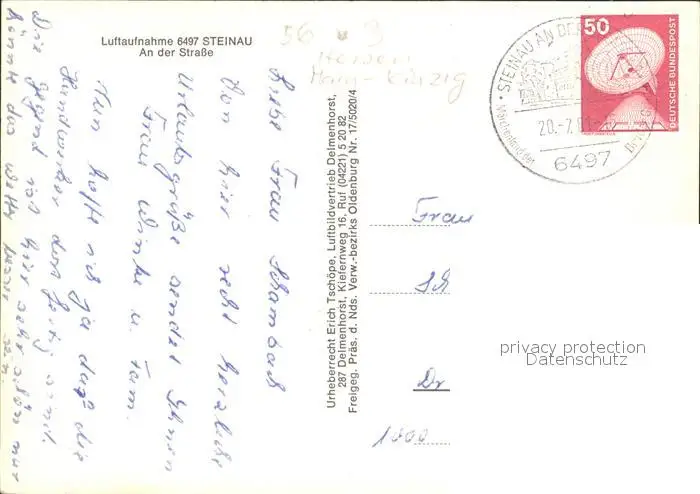 Luftaufnahme 6497 STEINAU
An der Straße
56 9
Hessen
Main-Kinzig
Liebe Frau Schambach
Von hier recht herzliche
Urlaubsgrüße sendet Ihnen
Frau Winke u. Fam.
Nun hoffe ich ja daß die
Handwerker dort fertig sind.
Die Gegend ist hier sehr schön nur
könnte das Wetter besser sein.
Urheberrecht Erich Tschöpe, Luftbildvertrieb Delmenhorst,
287 Delmenhorst, Kiefernweg 16, Ruf (04221) 5 20 82
Freigeg. Präs. d. Nds. Verw.-bezirks Oldenburg Nr. 17/5020/4
STEINAU AN DER
20.-7.
6497
50
DEUTSCHE BUNDESPOST
Frau
Sch
Dr
1000
privacy protection
Datenschutz